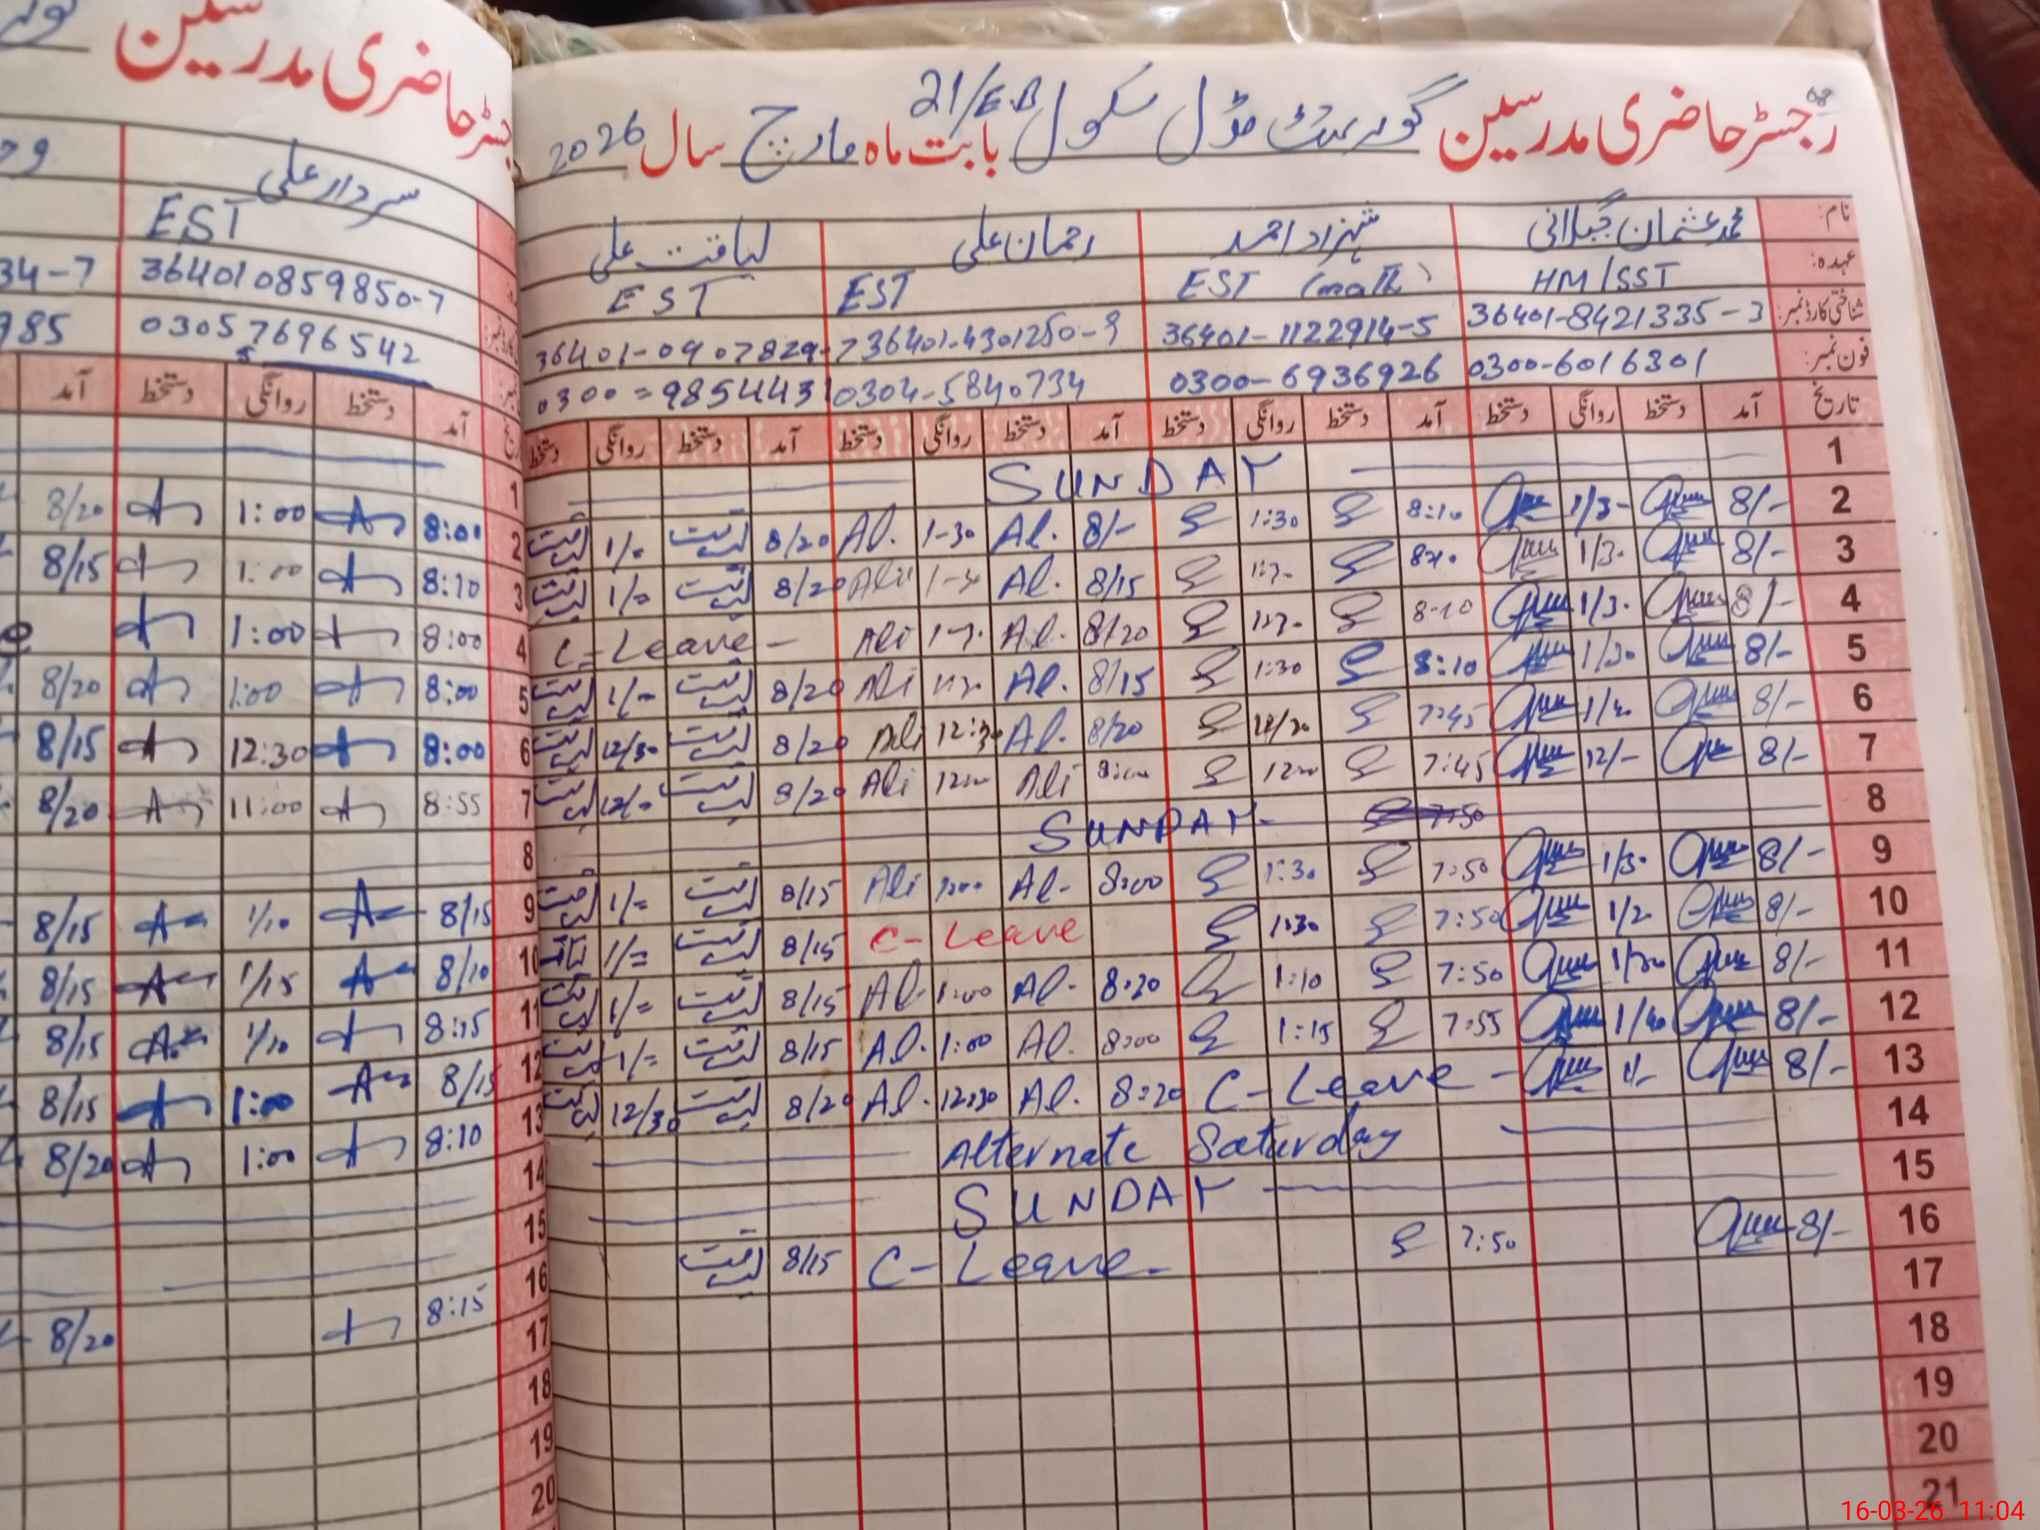 رجسٹر حاضری مدرسین گورنمنٹ مڈل سکول 21/E.B بابت ماہ مارچ سال 2026
نام: محمد عثمان گیلانی شہزاد احمد رحمان علی لیاقت علی
عہدہ: HM/SST EST (math) EST EST
شناختی کارڈ نمبر: 36401-8421335-3 36401-1122914-5 36401-4301250-9 36401-0907829-7
فون نمبر: 0300-6016301 0300-6936926 0304-5840734 0300-9854431
تاریخ آمد دستخط روانگی دستخط آمد دستخط روانگی دستخط آمد دستخط روانگی دستخط آمد دستخط روانگی دستخط
1 SUNDAY
2 8/- 1/3- 8:10 1:30 8/- Al. 1-30 Al. 8/20 لیاقت 1/- لیاقت
3 8/- 1/3- 8/15 Al. Ali 8/20 لیاقت 1/- لیاقت
4 8/- 1/3- 8-10 8/20 Al. Ali C-Leave
5 8/- 1/30 8:10 1:30 8/15 Al. Ali 8/20 لیاقت 1/- لیاقت
6 8/- 7:45 8/20 Al. 12:30 Ali 8/20 لیاقت 12/30 لیاقت
7 8/- 12/- 7:45 Ali Ali 8/20 لیاقت 12/- لیاقت
8 SUNDAY
9 8/- 1/30 7:50 1:30 8:00 Al- Ali 8/15 لیاقت 1/= لیاقت
10 8/- 7:50 1:30 C-Leave 8/15 لیاقت 1/=
11 8/- 7:50 1:10 8:20 Al- 1:00 Al. 8/15 لیاقت 1/= لیاقت
12 8/- 7:55 1:15 8:00 Al. 1:00 Al. 8/15 لیاقت 1/= لیاقت
13 8/- 1/- C-Leave 8:20 Al. 12:30 Al. 8/20 لیاقت 12/30 لیاقت
14 Alternate Saturday
15 SUNDAY
16 8/- 7:50 C-Leave 8/15 لیاقت
17
18
19
20
21
رجسٹر حاضری مدرسین
سردار علی
EST
364010859850-7 34-7
03057696542 985
آمد دستخط روانگی دستخط آمد
1
2 8:00 1:00 8/20
3 8:10 1:00 8/15
4 8:00 1:00
5 8:00 1:00 8/20
6 8:00 12:30 8/15
7 8:55 11:00 8/20
8
9 8/15 1/10 8/15
10 8/10 1/15 8/15
11 8:15 1/10 8/15
12 8/15 1:00 8/15
13 8:10 1:00 8/20
14
15
16 8:15 8/20
17
18
19
20
16-03-26 11:04